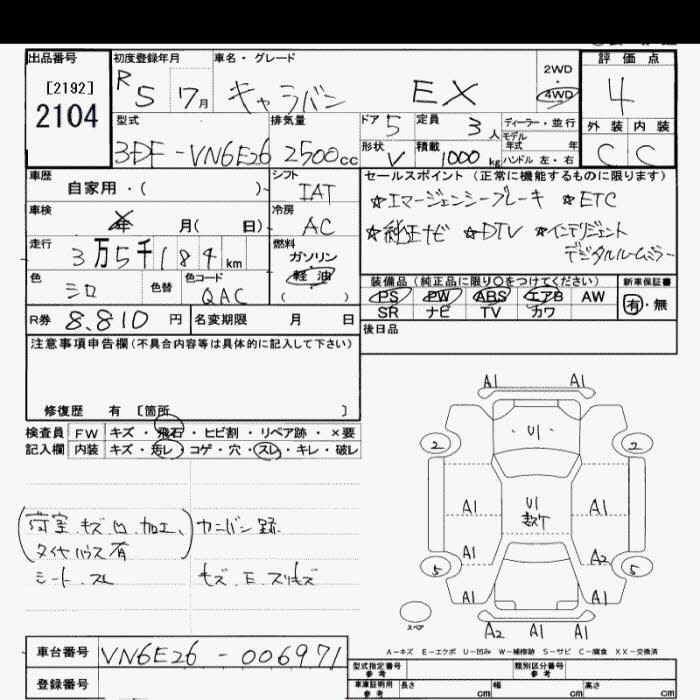 出品番号 初度登録年月 車名・グレード 評価点
[2192]
2104
R5 17月 キャラバン EX 2WD 4WD 4
型式 排気量 ドア 5 定員 3人 ディーラー・並行 外装 内装
モデル年式 年
3DF-VN6E26 2500cc 形状 V 積載 1000kg ハンドル 左・右 C C
車歴 シフト セールスポイント (正常に機能するものに限ります)
自家用・( )・ IAT ☆エマージェンシーブレーキ ☆ETC
車検 冷房
年 月( 日) AC ☆純正ナビ ☆DTV ☆インテリジェント
デジタルルームミラー
走行 燃料
3万5千184km ガソリン・
軽油
( )
装備品 (純正品に限り〇をつけてください) 新車保証書
色 色替 色コード
シロ QAC
PS PW ABS エアB AW 有・無
SR ナビ TV カワ
R券 8,810円 名変期限 月 日 後日品
注意事項申告欄(不具合内容等は具体的に記入して下さい)
修復歴 有 [箇所 ]
検査員 FW キズ・飛石・ヒビ割・リペア跡・×要
記入欄 内装 キズ・汚レ・コゲ・穴・スレ・キレ・破レ
(荷室.キズ.凹.加工、
タイヤハウス有)
シート.スレ
キズ.E.スリキズ
A1 A1
2 U1 2
A1 U1 A1
A1 A2
5 5
A1 A1
スペア A2 A1 A1
A-キズ E-エクボ U-凹み W-補修跡 S-サビ C-腐食 XX-交換済
車台番号 VN6E26-006971
登録番号
型式指定番号 参考 類別区分番号 参考
車庫証明用 参考 長さ cm 幅 cm 高さ cm